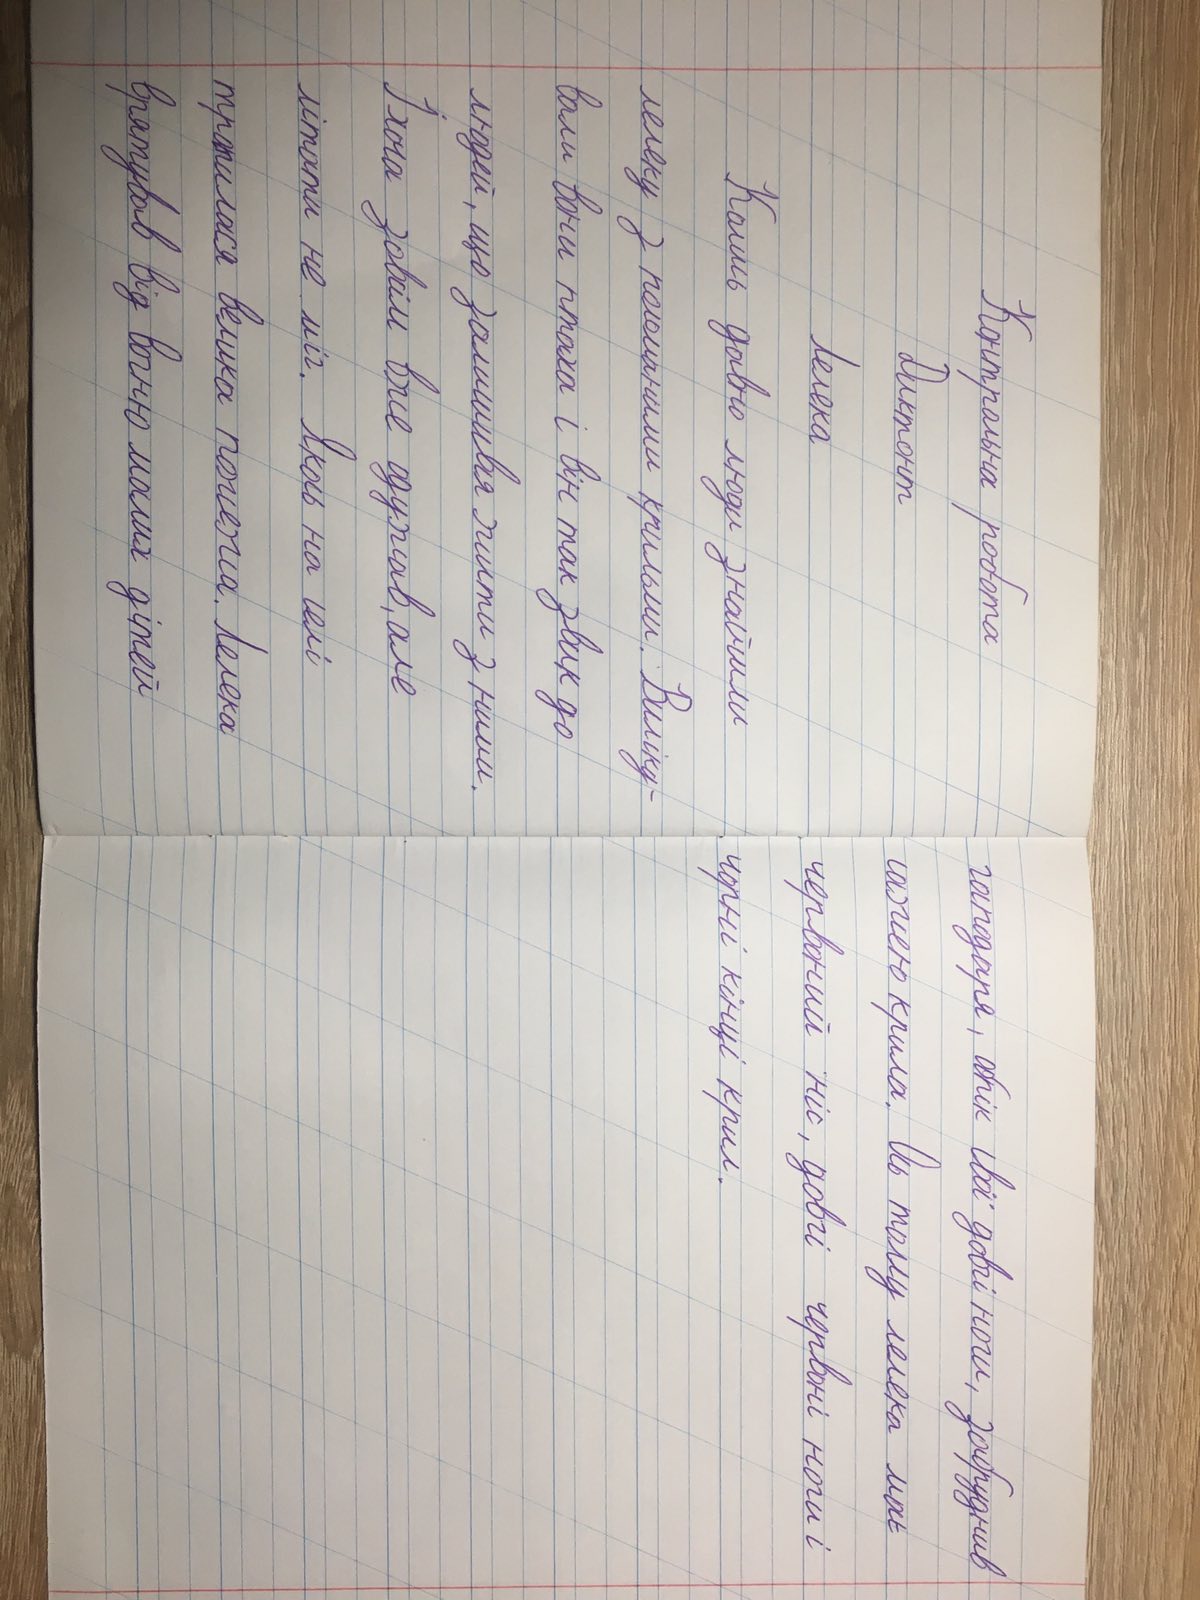 Контрольна робота
Диктант
Лелека
Колись давно люди знайшли
лелеку з поламаними крильми. Виліку-
вали вони птаха і він так звик до
людей, що залишився жити з ними.
Їхна зовсім вже дужчав, але
літати не міг. Якось на селі
трапилася велика пожежа. Лелека
врятував від вогню малих дітей
господаря, обпік свої довгі ноги, забруднив
сажею крила. Ось тому лелека має
червоний ніс, довгі червоні ноги і
чорні кінці крил.